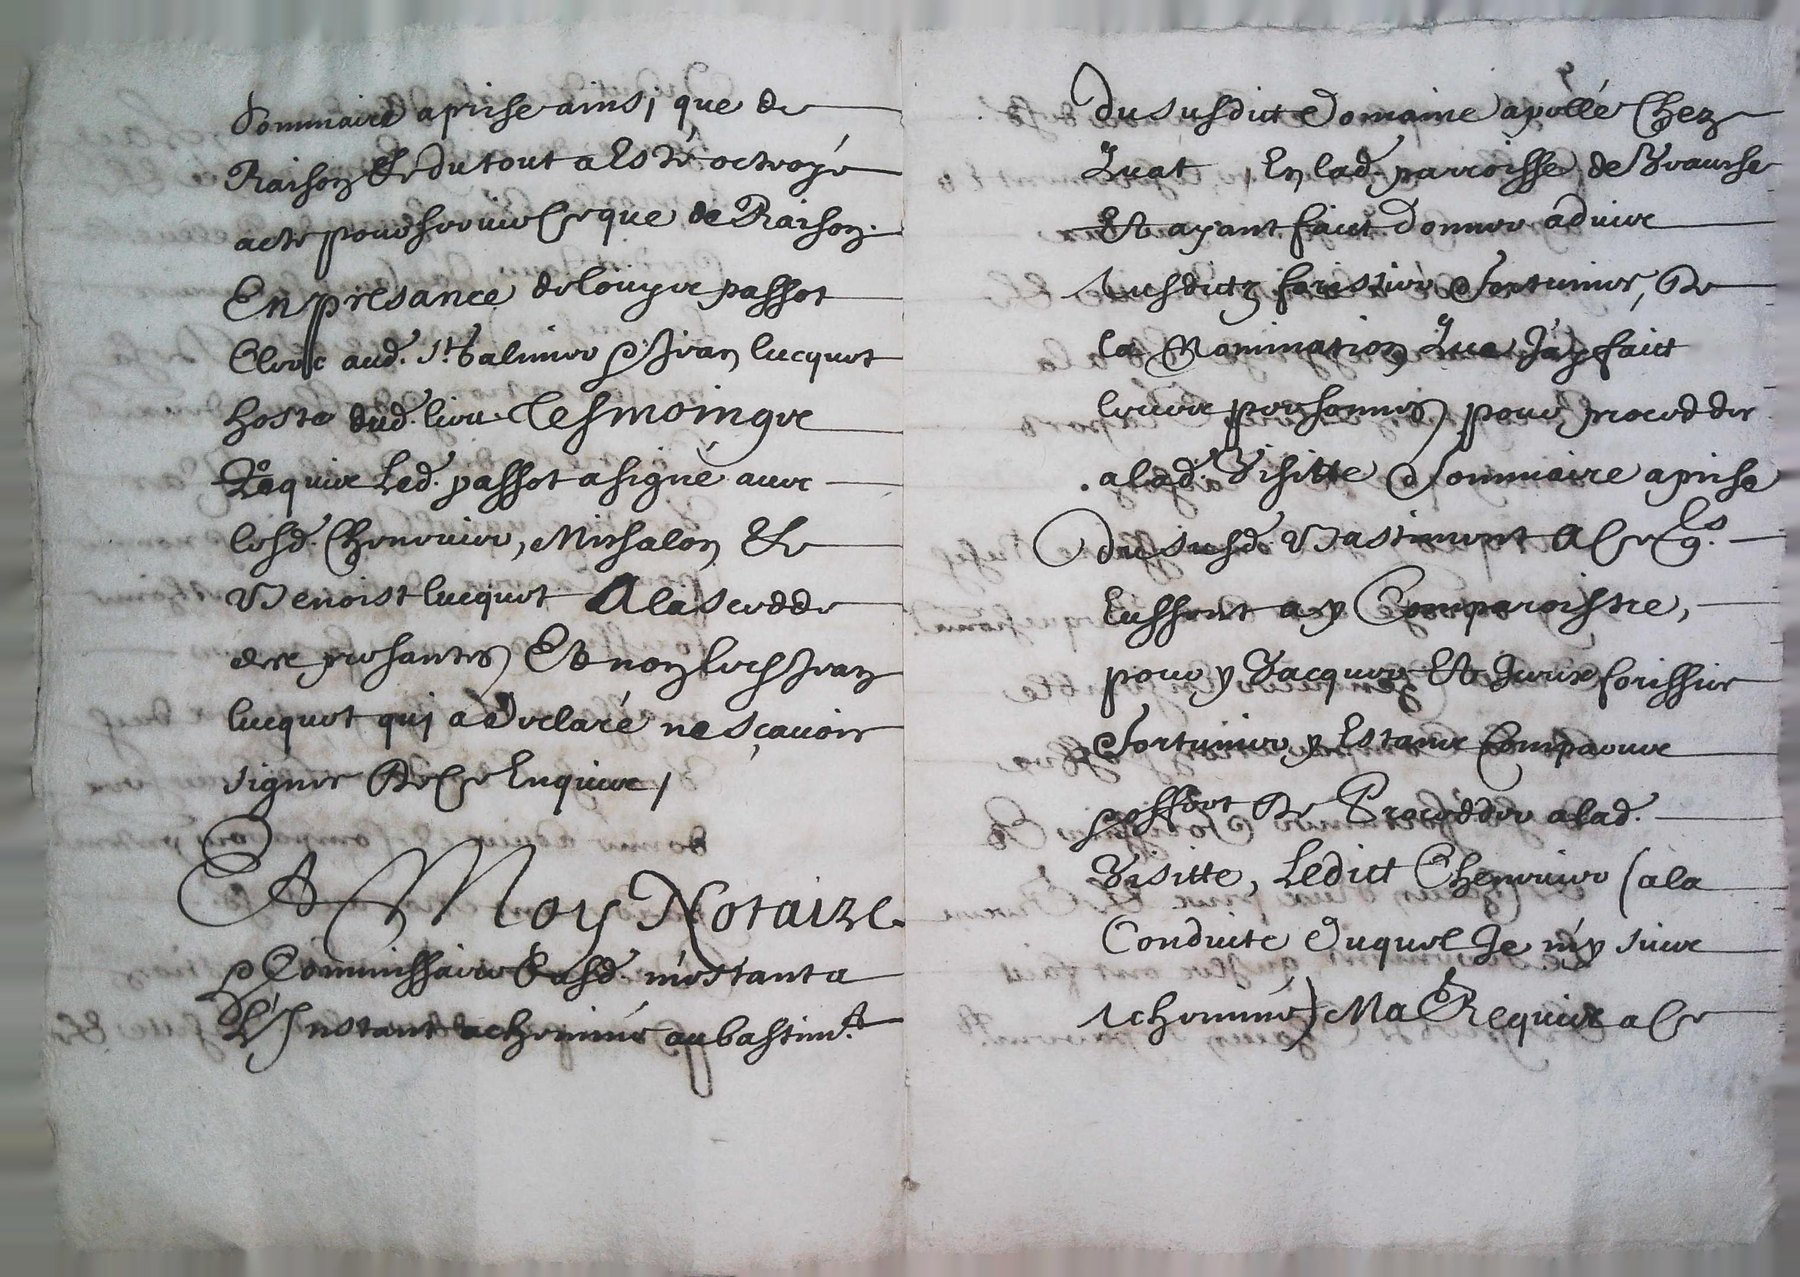 Sommaire aprise ainsi que de
Raison Et dutout a Esté octroyé
acte pour servir Ce que de Raison.
En presance de passot
Clerc aud. St. Jean lucquet
hoste dud. lieu Tesmoings
Requis Led. passot a signé avec
lesd. Chenevier, Michalon Et
Benoist lucquet A la scedde
des presantes Et non led. Jean
lucquet qui a declaré ne sçavoir
signer De Ce Enquis,
Et Moy Notaire
Commissaire susd. m'estant a
L'Instant acheminé au bastimt.
du susdict Domaine apollé Chez
Quat En lad. parroisse de
Et ayant faict donner advis
susdictz forissier Fortunier, De
la Nomination Que J'ay faict
de leurs personnes pour procedder
a lad. Visitte Sommaire aprise
du susd. Bastiment A Ce Qs.
Eussent a y Comparoistre,
pour y Vacquer Et Iceux forissier
Fortunier y Estants Comparus
De Procedder a lad.
Visitte, Ledict Chenevier (a la
Conduite Duquel Je m'y suis
acheminé) Ma Requis a Ce